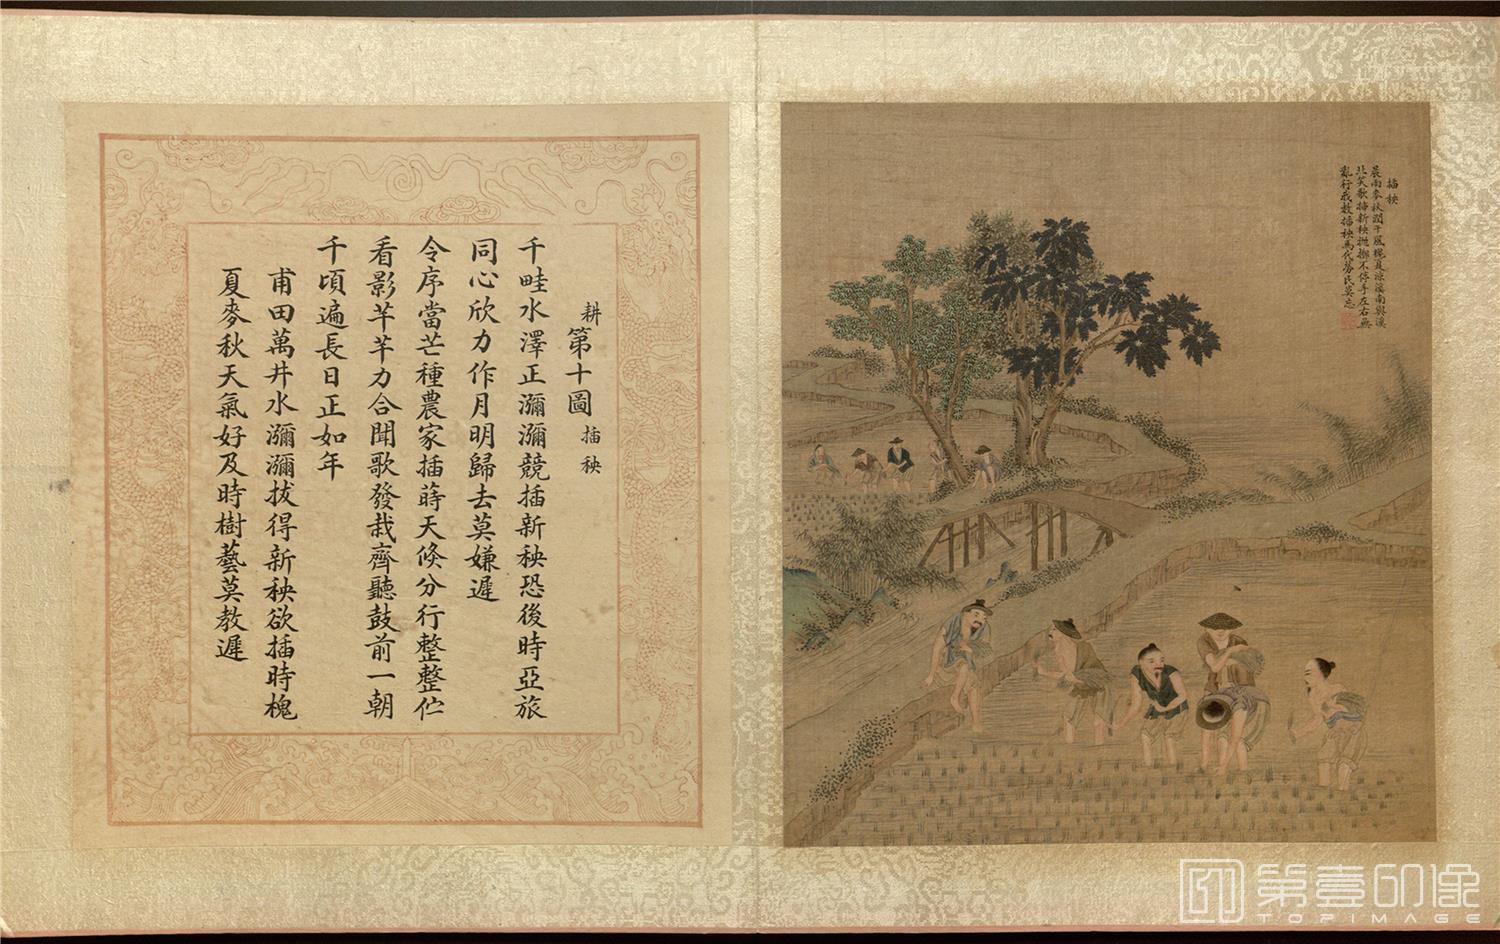 插秧
晨雨麥秋潤午風槐夏涼溪南與溪
北笑歌插新秧拋擲不停手左右無
亂行我教插秧馬代勞民莫忘
耕第十圖 插秧
千畦水澤正瀰瀰競插新秧恐後時亞旅
同心欣力作月明歸去莫嫌遲
令序當芒種農家插蒔天倏分行整整佇
看影芊芊力合聞歌發栽齊聽鼓前一朝
千頃遍長日正如年
甫田萬井水瀰瀰拔得新秧欲插時槐
夏麥秋天氣好及時樹藝莫教遲
第壹印像
TOPIMAGE